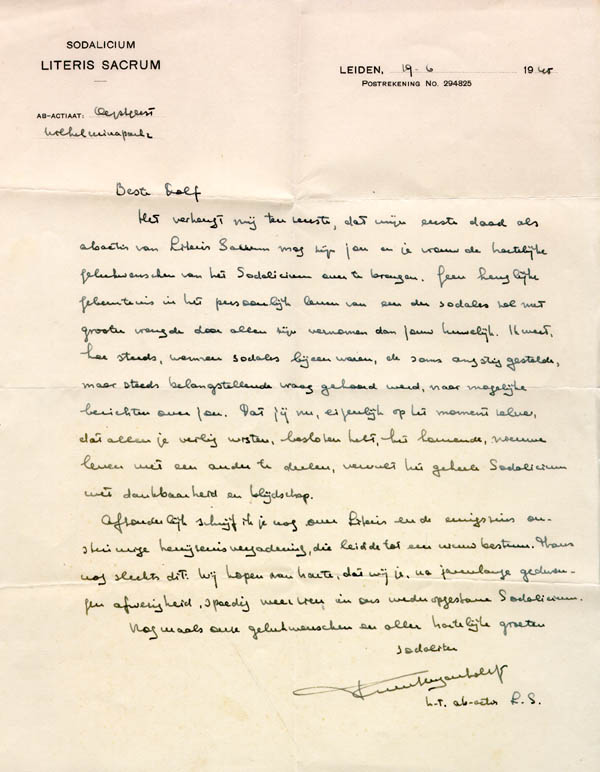 SODALICIUM
LITERIS SACRUM
LEIDEN, 19-6 1945
POSTREKENING No. 294825
AB-ACTIAAT: Oegstgeest
Wilhelminapark 2
Beste Dolf
Het verheugt mij ten zeerste, dat mijn eerste daad als
abactis van Literis Sacrum mag zijn jou en je vrouw de hartelijke
gelukwenschen van het Sodalicium over te brengen. Geen heuglijke
gebeurtenis in het persoonlijk leven van een der sodales zal met
grooter vreugde door allen zijn vernomen dan jouw huwelijk. Ik weet,
hoe steeds, wanneer sodales bijeen waren, de soms angstig gestelde,
maar steeds belangstellende vraag gehoord werd, naar mogelijke
berichten over jou. Dat jij nu, eigenlijk op het moment zelve,
dat allen je veilig wisten, besloten hebt, het komende, nieuwe
leven met een ander te deelen, vervult het geheele Sodalicium
met dankbaarheid en blijdschap.
Afzonderlijk schrijf ik je nog over Literis en de eenigszins on-
stuimige herrijzenisvergadering, die leidde tot een nieuw bestuur. Thans
nog slechts dit: Wij hopen van harte, dat wij je, na jarenlange gedwon-
gen afwezigheid, spoedig weer zien in ons wederopgestane Sodalicium.
Nogmaals onze gelukwenschen en aller hartelijke groeten
sodaliter
h.t. ab-actis L.S.